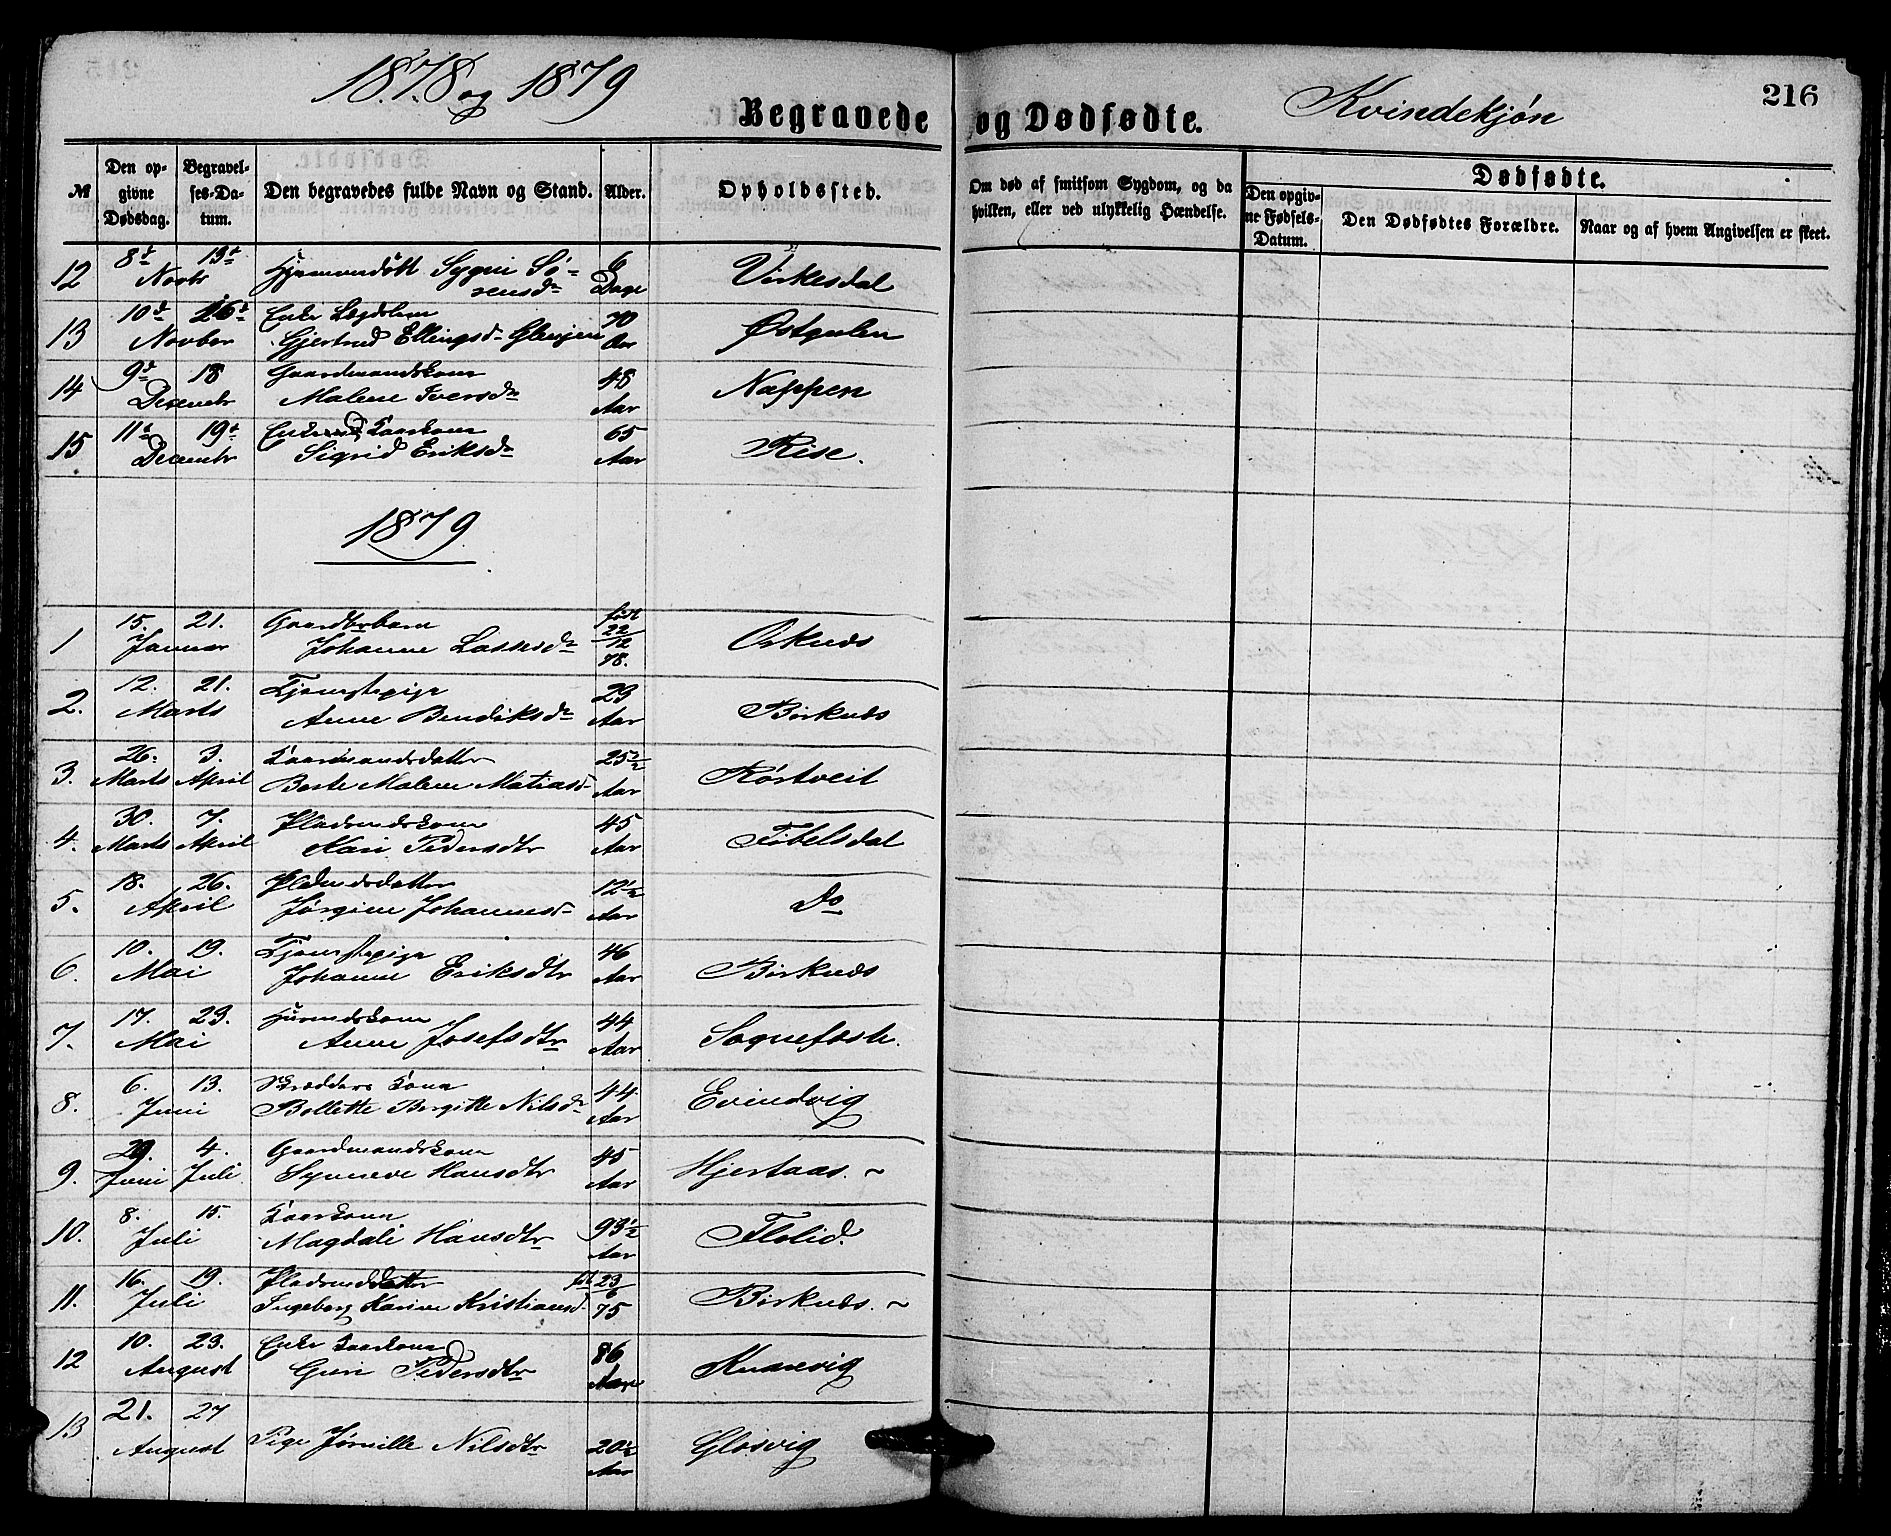 1878 og 1879
Begravede og Dødfødte.
Kvindekjøn
216
№
Den opgivne Dødsdag.
Begravelses-Datum.
Den begravedes fulde Navn og Stand.
Alder.
Opholdssted.
Om død af smitsom Sygdom, og da hvilken, eller ved ulykkelig Hændelse.
Dødfødte.
Den opgivne Fødsels-Datum.
Den Dødfødtes Forældre.
Naar og af hvem Angivelsen er skeet.
12 8d 13d Novbr Sygni Sørensdr 6 Dage Virkesdal
13 10d 26d Novber Enke Gjertrud Ellingsdr 70 Aar Østgulen
14 9d 18 Decembr Gaardmandskone Malene Iversdr 48 Aar Nappen
15 11d 19d Decembr Sigrid Eriksdr 65 Aar Rise.
1879
1 15. 21. Januar Johanne Lassesdr født 22/12 78. Oskuds
2. 12. 21. Marts Tjenestepige Anne Bendiksdr 23 Aar Birkuds
3. 26. Marts 3. April Kaarmandsdatter Berte Malene Matiasd 25 1/2 Aar Rørtveit
4. 30. Marts 7. April Pladsmdskone Kari Pedersdtr 45 Aar Tobelsdal
5. 18. 26. April Jørgine Johannesd 12 1/2 Aar Do
6. 10. 19. Mai Tjenestepige Johanne Eriksdtr 46 Aar Birkuds
7. 17. 23. Mai Husmdskone Anne Josefsdtr 44 Aar Sognefæste.
8. 6. 13. Juni Skrædders Kone Bollette Bergitte Nilsdr 44 Aar Evindvig
9. 29. Juni 4. Juli Gaardmandskone Synneve Hansdtr 45 Aar Hjertaas. ~
10. 8. 15. Juli Kaarkone Magdali Hansdtr 93 1/2 Aar Flolid.
11. 16. 19. Juli Pladsmdsdatter Ingeborg Karine Kristiansd. 23/6 75 Birkuds. ~
12 10. 23. August Enke Kaarkone Guri Pedersdtr 86 Aar Knarvig
13 21. 27 August Pige Jørnille Nilsdtr 20 1/2 Aar Glosvig